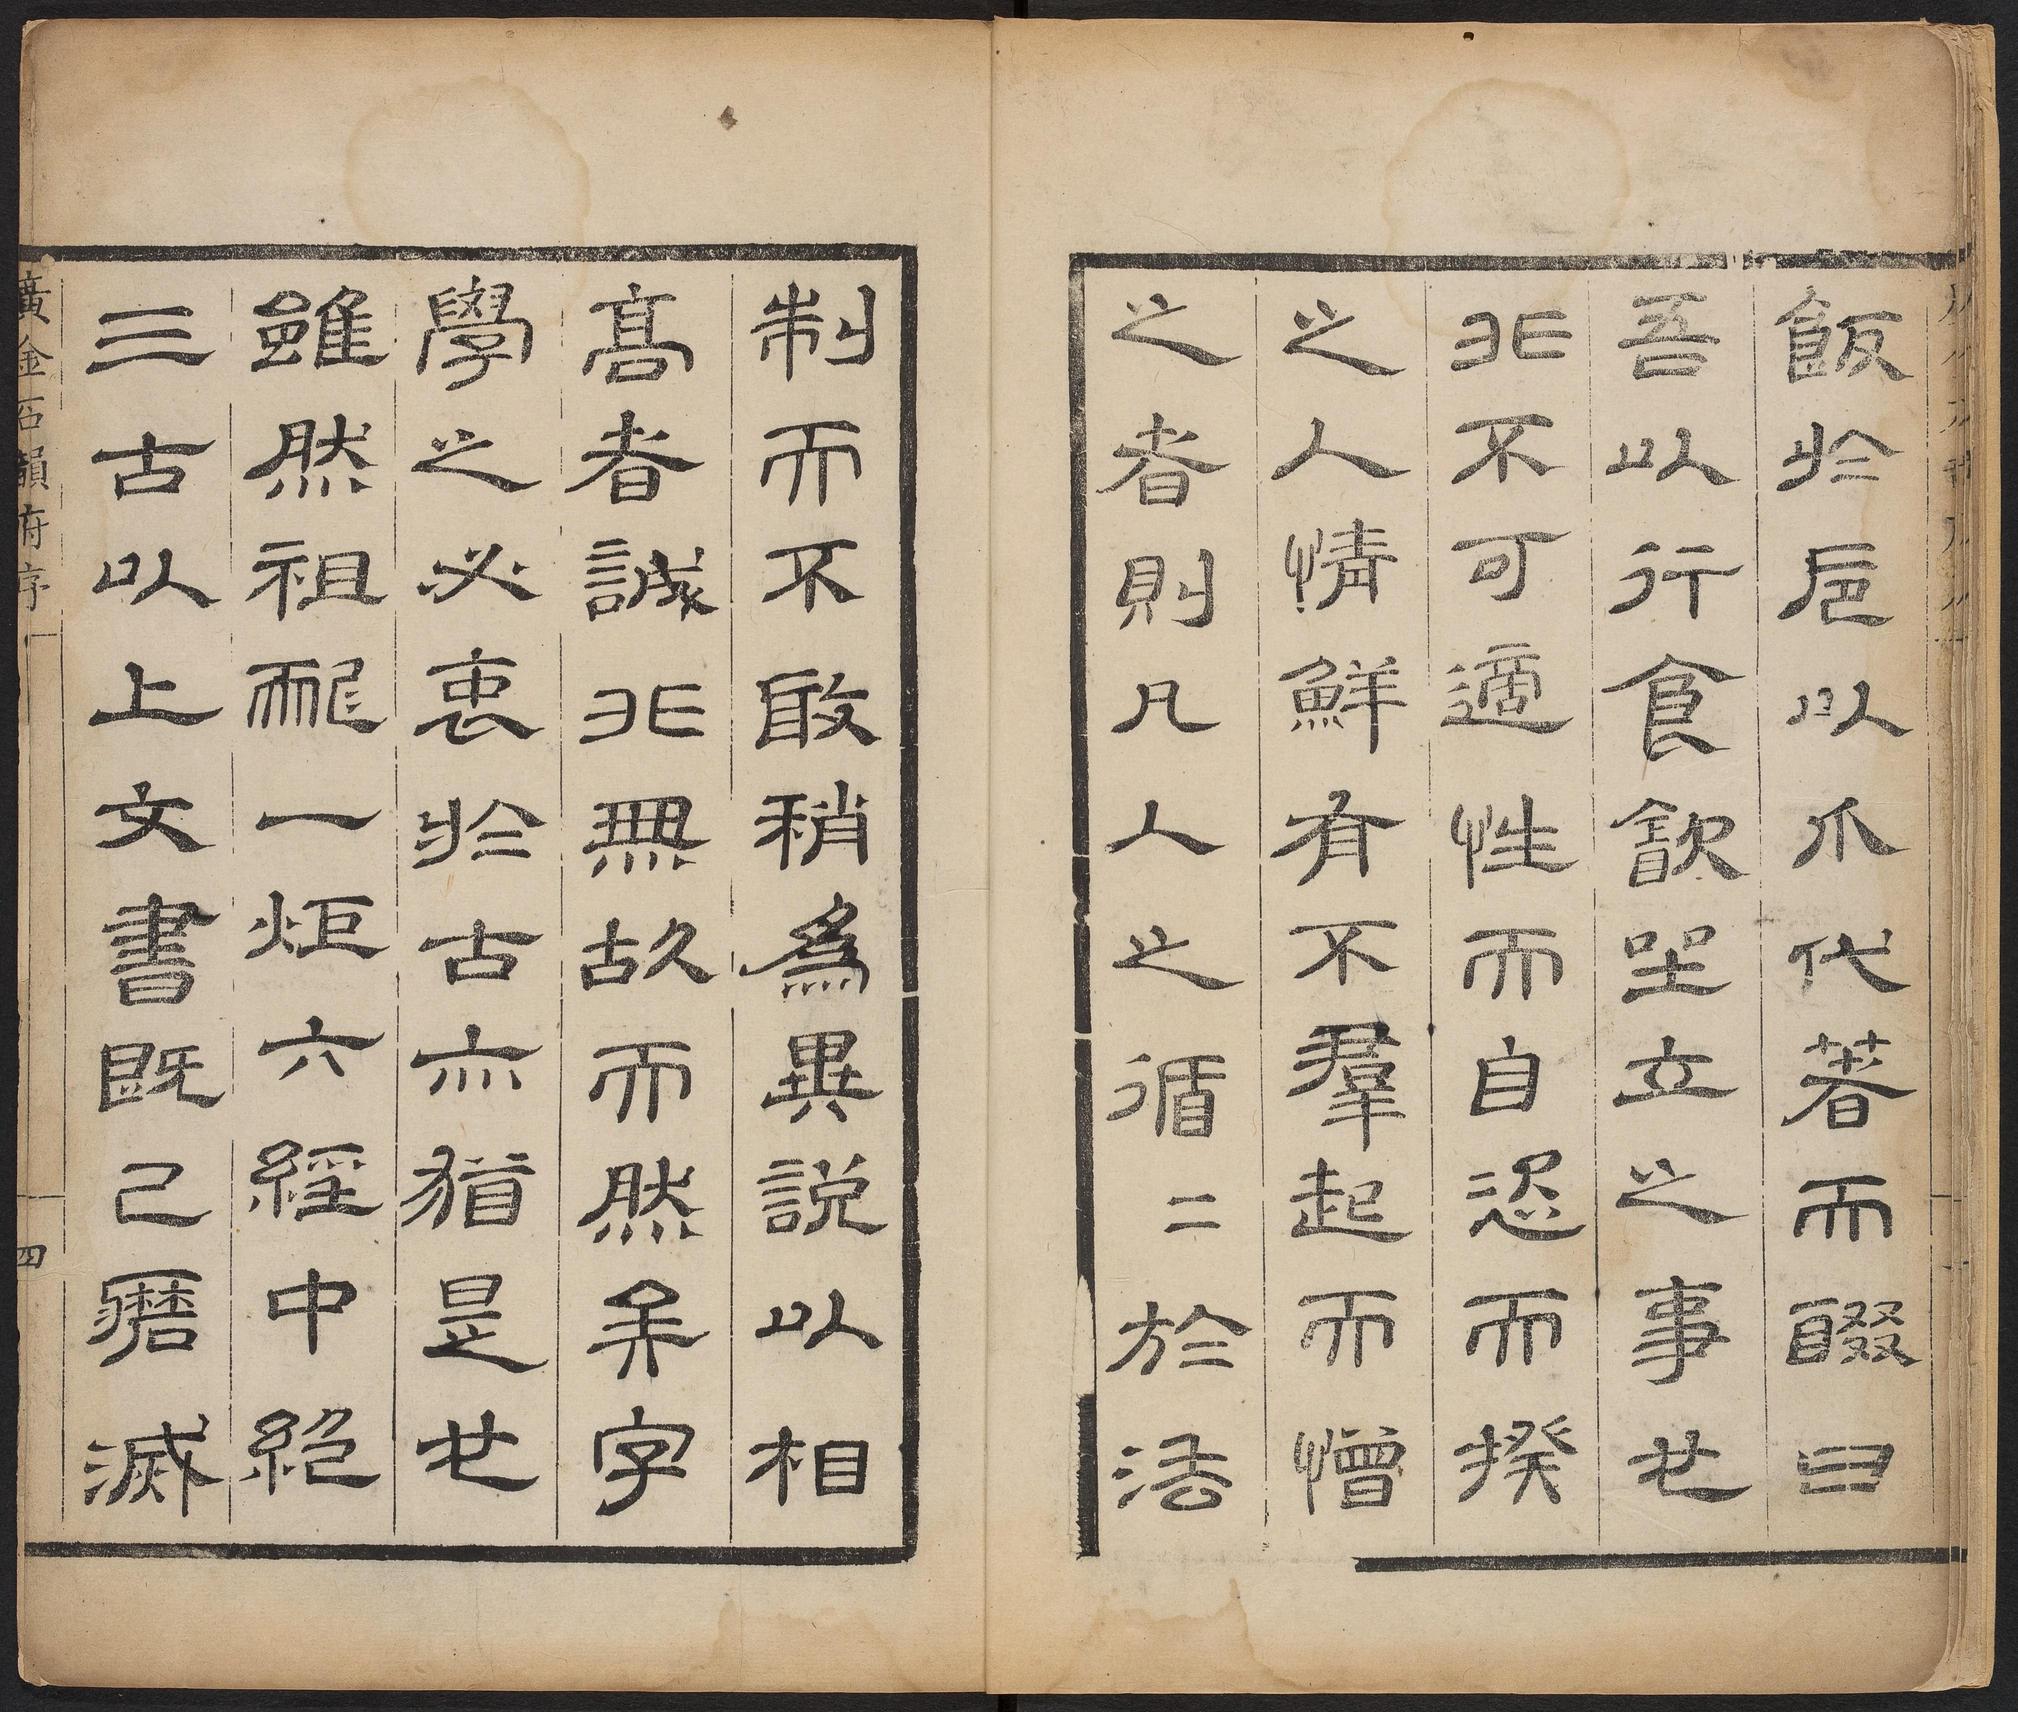 飯於卮以爪代著而啜曰
吾以行食飲坐立之事也
非不可適性而自恣而揆
之人情鮮有不羣起而憎
之者則凡人之循二於法
制而不敢稍為異說以相
高者誠非無故而然矣字
學之必衷於古亦猶是也
雖然祖龍一炬六經中絕
三古以上文書既已磨滅
廣金石韻府序
四